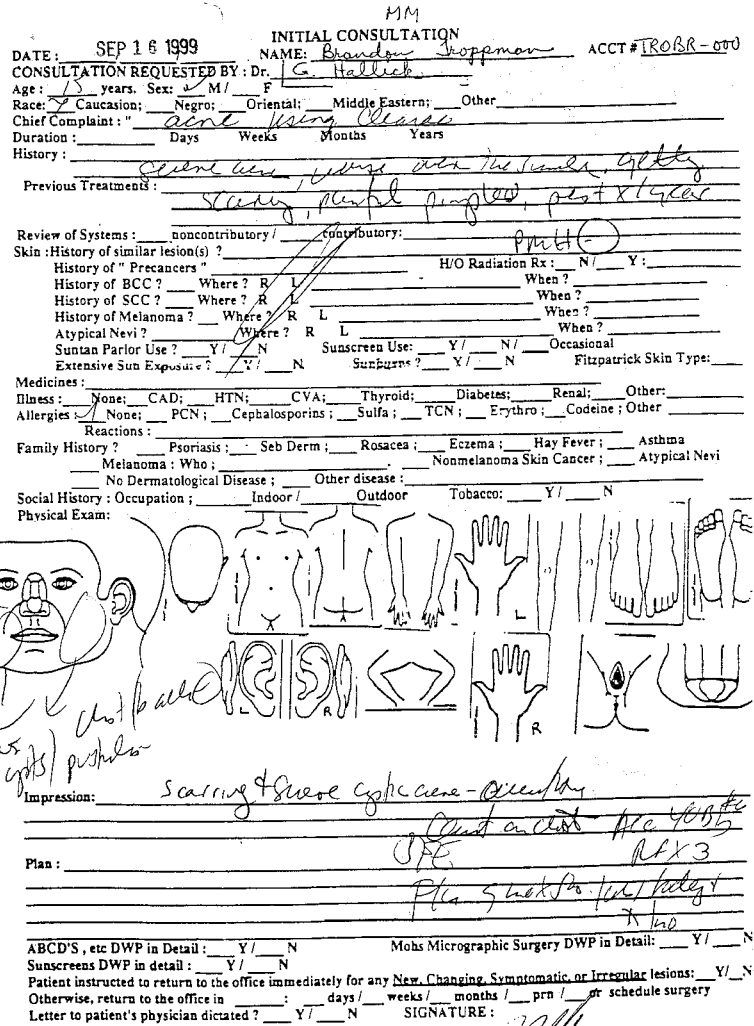 MM
INITIAL CONSULTATION
DATE : SEP 16 1999 NAME: Brandon Troppman ACCT # TROBR-000
CONSULTATION REQUESTED BY : Dr. G. Hallick
Age : 15 years. Sex: M/ F
Race: Caucasian; Negro; Oriental; Middle Eastern; Other
Chief Complaint : " acne using
Duration : Days Weeks Months Years
History :
severe acne, worse over the summer, getting
Previous Treatments :
scarring, painful pimples, past x 1 year
Review of Systems : noncontributory / contributory:
PMH -
Skin :History of similar lesion(s) ?
History of " Precancers " H/O Radiation Rx : N/ Y :
History of BCC ? Where ? R L When ?
History of SCC ? Where ? R L When ?
History of Melanoma ? Where ? R L When ?
Atypical Nevi ? Where ? R L When ?
Suntan Parlor Use ? Y / N Sunscreen Use: Y / N / Occasional
Extensive Sun Exposure ? Y / N Sunburns ? Y / N Fitzpatrick Skin Type:
Medicines :
Illness : None; CAD; HTN; CVA; Thyroid; Diabetes; Renal; Other:
Allergies : None; PCN ; Cephalosporins ; Sulfa ; TCN ; Erythro ; Codeine ; Other
Reactions :
Family History ? Psoriasis ; Seb Derm ; Rosacea ; Eczema ; Hay Fever ; Asthma
Melanoma : Who ; Nonmelanoma Skin Cancer ; Atypical Nevi
No Dermatological Disease ; Other disease :
Social History : Occupation ; Indoor / Outdoor Tobacco: Y / N
Physical Exam:
L
L R R
chest / back
cysts / pustules
Impression: Scarring + Severe cystic acne -
on chest
Plan : RF X 3
ABCD'S , etc DWP in Detail : Y / N Mohs Micrographic Surgery DWP in Detail: Y / N
Sunscreens DWP in detail : Y / N
Patient instructed to return to the office immediately for any New, Changing, Symptomatic, or Irregular lesions: Y/ N
Otherwise, return to the office in : days / weeks / months / prn / or schedule surgery
Letter to patient's physician dictated ? Y / N SIGNATURE :